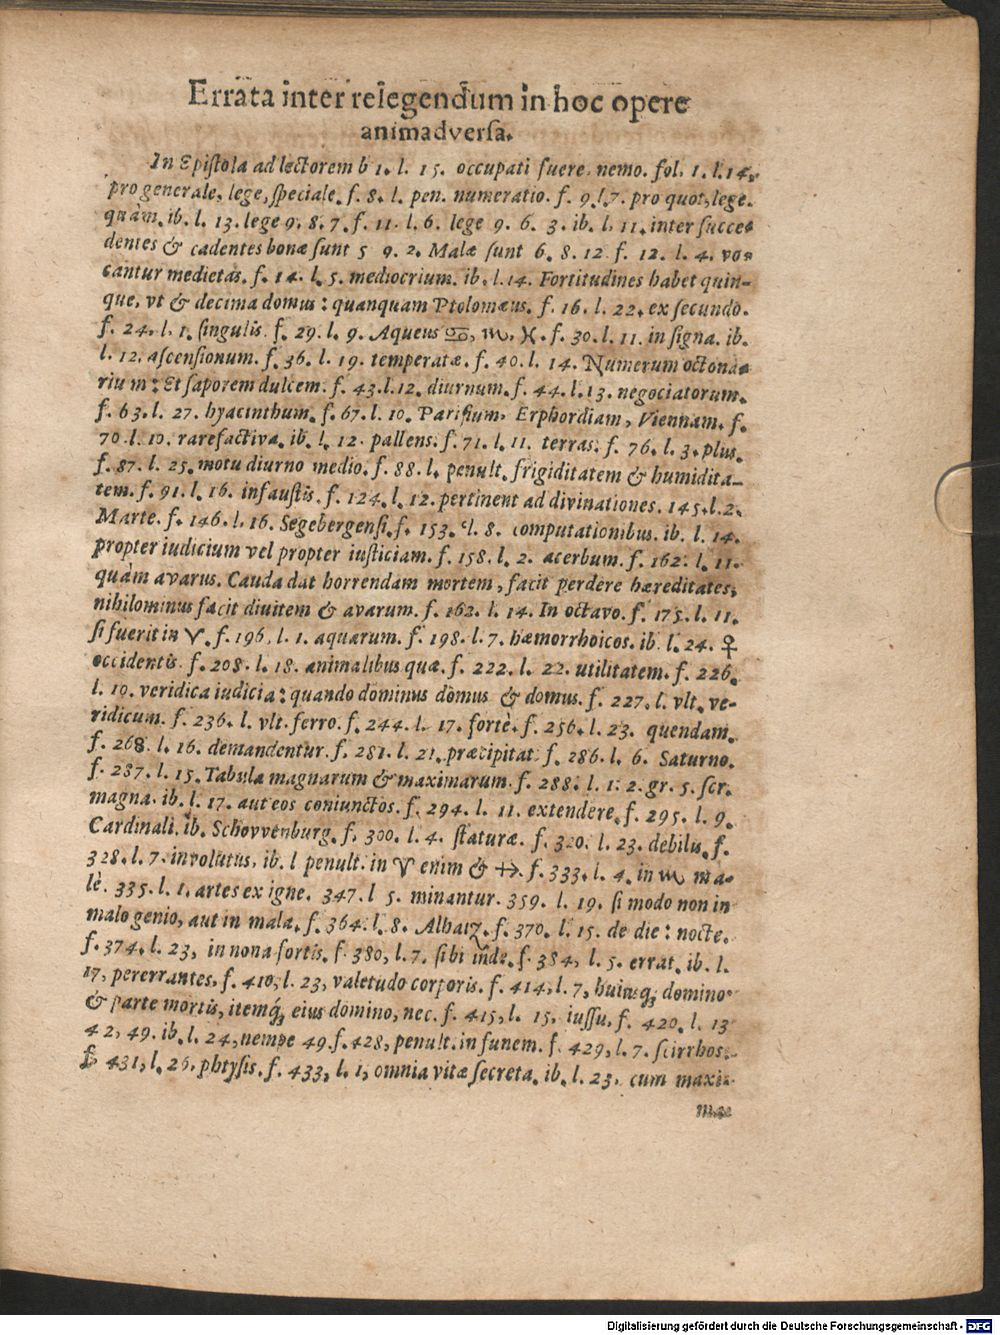 Errata inter relegendum in hoc opere
animadversa.
In Epistola ad lectorem b 1. l. 15. occupati fuere. nemo. fol. 1. l. 14.
pro generale, lege, speciale. f. 8. l. pen. numeratio. f. 9. l. 7. pro quot, lege.
quàm. ib. l. 13. lege 9. 8. 7. f. 11. l. 6. lege 9. 6. 3. ib. l. 11. inter succe-
dentes & cadentes bonæ sunt 5 9. 2. Malæ sunt 6. 8. 12. f. 12. l. 4. vo-
cantur medietas. f. 14. l. 5. mediocrium. ib. l. 14. Fortitudines habet quin-
que, vt & decima domus: quanquam Ptolomæus. f. 16. l. 22. ex secundo.
f. 24. l. 1. singulis. f. 29. l. 9. Aqueus ♋, ♏, ♓. f. 30. l. 11. in signa. ib.
l. 12. ascensionum. f. 36. l. 19. temperatæ. f. 40. l. 14. Numerum octona-
rium: Et saporem dulcem. f. 43. l. 12. diurnum. f. 44. l. 13. negociatorum.
f. 63. l. 27. hyacinthum. f. 67. l. 10. Parisium, Erphordiam, Viennam. f.
70. l. 10. rarefactiva. ib. l. 12. pallens. f. 71. l. 11. terras. f. 76. l. 3. plus.
f. 87. l. 25. motu diurno medio. f. 88. l. penult. frigiditatem & humidita-
tem. f. 91. l. 16. infaustis. f. 124. l. 12. pertinent ad divinationes. 145. l. 2.
Marte. f. 146. l. 16. Segebergensi. f. 153. l. 8. computationibus. ib. l. 14.
propter iudicium vel propter iusticiam. f. 158. l. 2. acerbum. f. 162. l. 11.
quàm avarus. Cauda dat horrendam mortem, facit perdere hæreditates,
nihilominus facit divitem & avarum. f. 162. l. 14. In octavo. f. 175. l. 11.
si fuerit in ♈. f. 196. l. 1. aquarum. f. 198. l. 7. hæmorrhoicos. ib. l. 24. ♀
occidentis. f. 208. l. 18. animalibus quæ. f. 222. l. 22. utilitatem. f. 226.
l. 19. veridica iudicia: quando dominus domus & domus. f. 227. l. vlt. ve-
ridicum. f. 236. l. vlt. ferro. f. 244. l. 17. fortè. f. 256. l. 23. quendam.
f. 268. l. 16. demandentur. f. 281. l. 21. præcipitat. f. 286. l. 6. Saturno.
f. 287. l. 15. Tabula magnarum & maximarum. f. 288. l. 1. 2. gr. 5. scr.
magna. ib. l. 17. aut eos coniunctos. f. 294. l. 11. extendere. f. 295. l. 9.
Cardinali. ib. Schovvenburg. f. 300. l. 4. staturæ. f. 320. l. 23. debilis. f.
328. l. 7. involutus. ib. l penult. in ♈ enim & ♐. f. 333. l. 4. in ♏ ma-
lè. 335. l. 1. artes ex igne. 347. l 5. minantur. 359. l. 19. si modo non in
malo genio, aut in mala. f. 364. l. 8. Albatz. f. 370. l. 15. de die: nocte.
f. 374. l. 23, in nona fortis. f 380, l. 7. sibi inde. f. 384, l. 5. errat. ib. l.
17, pererrantes. f. 410, l. 23, valetudo corporis. f. 414, l. 7, huiusq; domino
& parte mortis, itemq́; eius domino, nec. f. 415, l. 15, iussu. f. 420. l. 13
42, 49. ib. l. 24, nempe 49. f. 428, penult. in funem. f. 429, l. 7. scirrhos.
f. 431, l. 26. phtysis. f. 433, l. 1, omnia vitæ secreta. ib. l. 23. cum maxi-
mæ
Digitalisierung gefördert durch die Deutsche Forschungsgemeinschaft - DFG